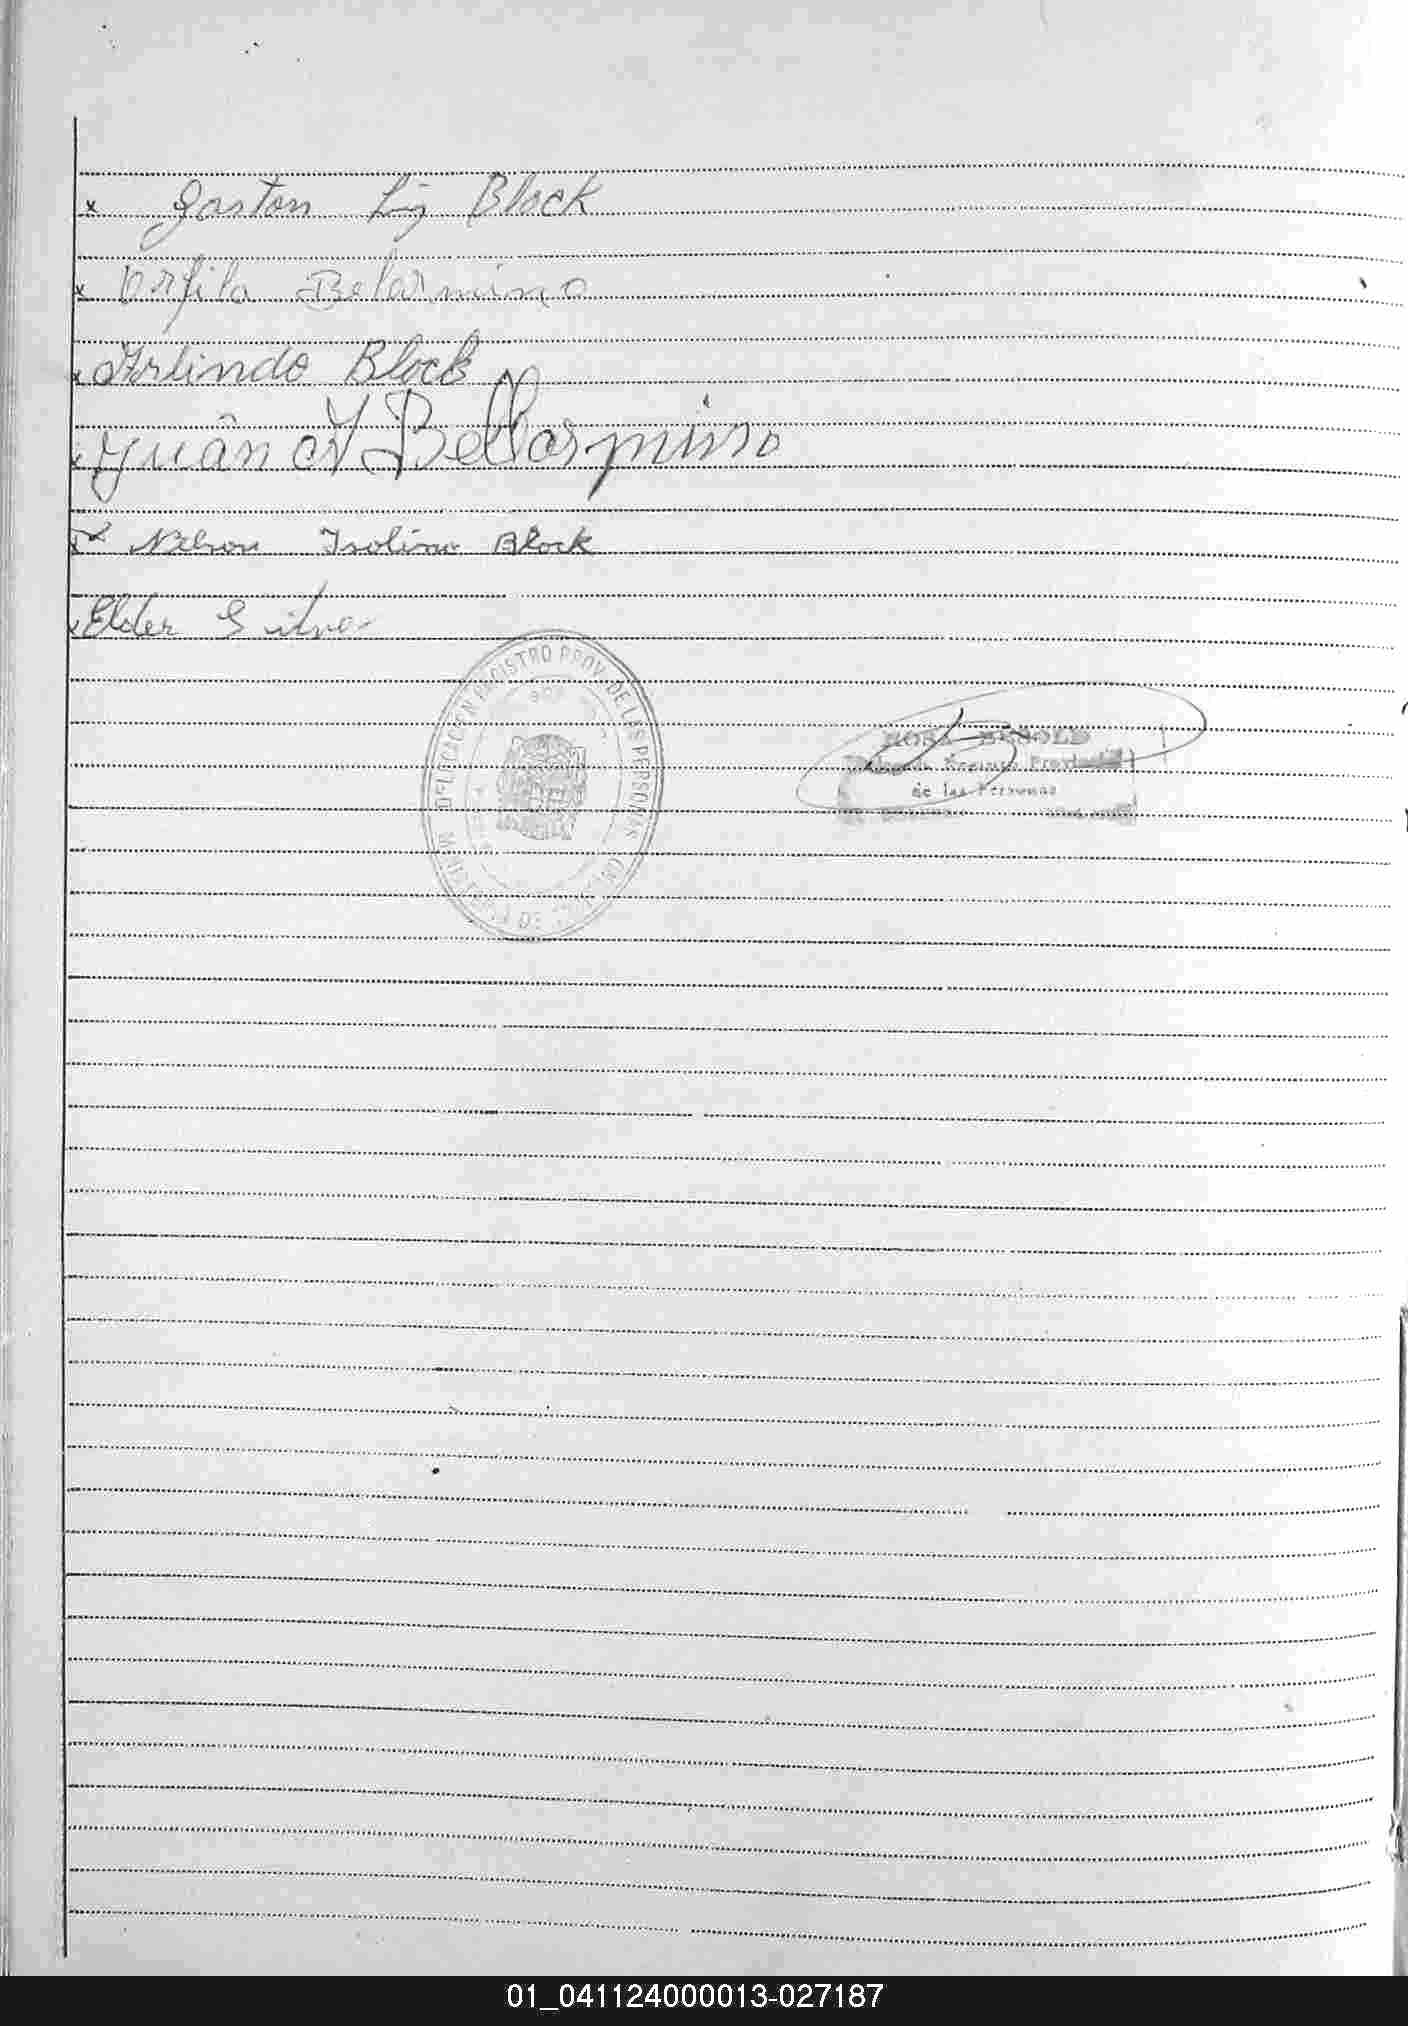 x Gaston Liz Block
x Orfila Belarmino
x Arlindo Block
x Juan A Bellarmino
x Nelson Isolino Block
x Elder Silva
DELEGACION REGISTRO PROV. DE LAS PERSONAS
MINISTERIO DE
ROSA
Registro Provincial
de las Personas
01_041124000013-027187